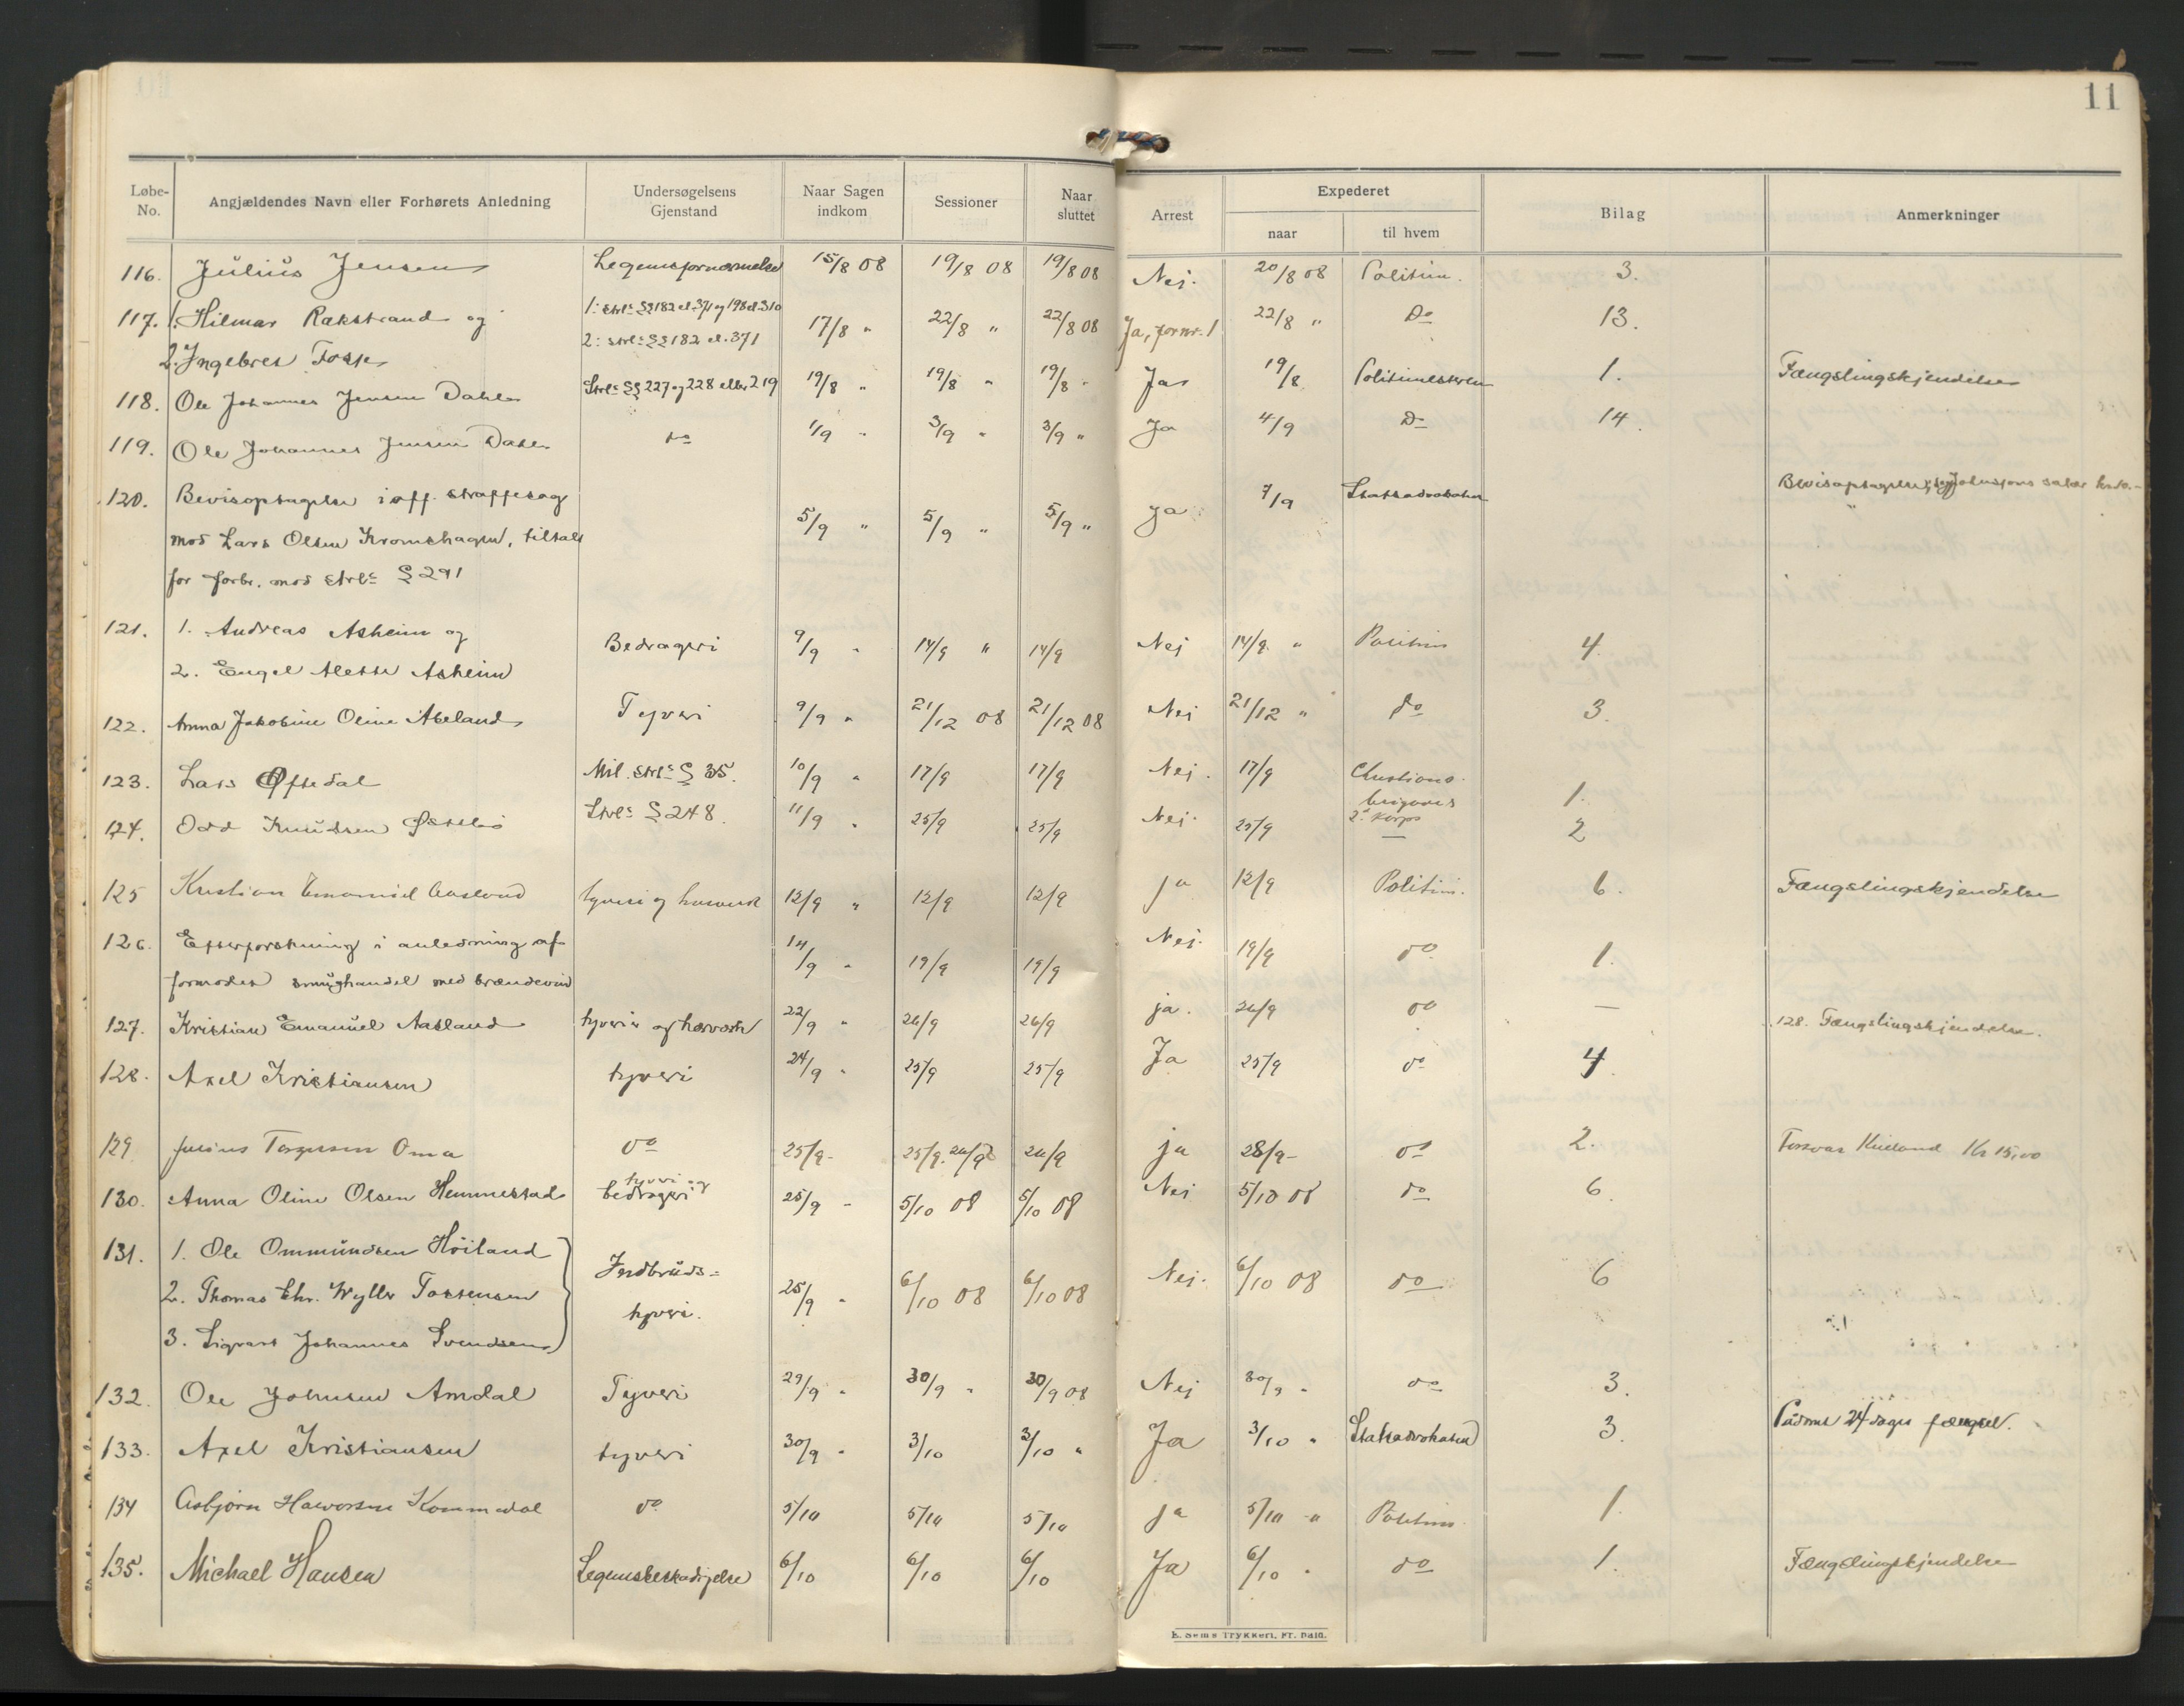 11
Løbe-No. Angjældendes Navn eller Forhørets Anledning Undersøgelsens Gjenstand Naar Sagen indkom Sessioner Naar sluttet Arrest Expederet naar til hvem Bilag Anmerkninger
116. Julius Jensen Legemsfornærmelse 15/8 08 19/8 08 19/8 08 Nei. 20/8 08 Politim. 3.
117. 1. Hilmar Rakstrand og 1: strl. §§182 cl. 371 og 198 cl. 310 17/8 " 22/8 " 22/8 08 Ja, for nr. 1 22/8 " Do 13.
2. Ingebret Fosse 2: strl. §§182 cl. 371
118. Ole Johannes Jensen Dahle Strl. §§ 227 og 228 eller 219 19/8 " 19/8 " 19/8 " Ja 19/8 Politimesteren 1. Fængslingskjendelse
119. Ole Johannes Jensen Dahle do 1/9 " 3/9 " 3/9 " Ja 4/9 Do 14.
120. Bevisoptagelse i off. straffesag 7/9 Statsadvokaten Bevisoptagelse,
mod Lars Olsen Kromshagen, tiltalt 5/9 " 5/9 " 5/9 " ja
for forbr. mod strl. § 291
121. 1. Andreas Asheim og Bedrageri 9/9 " 14/9 " 14/9 Nei 14/9 " Politim 4.
2. Engel Alette Asheim
122. Anna Jakobine Oline Abeland Tyveri 9/9 " 21/12 08 21/12 08 Nei 21/12 " do 3.
123. Lars Oftedal Mil. strl. § 35. 10/9 " 17/9 17/9 Nei. 17/9
1.
124. Odd Knudsen Strl. § 248. 11/9 " 25/9 25/9 Nei. 25/9 — 2
125 Kristian Emanuel Aasland tyveri og hærverk 12/9 " 12/9 12/9 ja 12/9 Politim. 6. Fængslingskjendelse
126. Efterforskning i anledning af 14/9 " 19/9 19/9 Nei. 19/9 do 1.
formodet smughandel med brændevin
127. Kristian Emanuel Aasland tyveri og hærverk 22/9 " 26/9 26/9 ja. 26/9 do — 128. Fængslingskjendelse.
128. Axel Kristiansen tyveri 24/9 " 25/9 25/9 Ja 25/9 do 4.
129 Julius Torgersen Oma do 25/9 - 25/9. 26/9 26/9 ja 28/9 - do 2. Forsvar Kielland Kr 15,00
130. Anna Oline Olsen Hemmestad tyveri og bedrageri 25/9 - 5/10 08 5/10 08 Nei 5/10 08 do 6.
131. 1. Ole Ommundsen Höiland Indbruds=
2. Thomas Chr. Wyller Torstensen tyveri. 25/9 " 6/10 08 6/10 08 Nei. 6/10 08 do 6
3. Sigvart Johannes Svendsen
132. Ole Johnsen Amdal Tyveri 29/9 " 30/9 " 30/9 08 Nei 30/9 " do 3.
133. Axel Kristiansen tyveri 30/9 " 3/10 3/10 " Ja 3/10 " Statsadvokaten 3. Idømt 24 dages fængsel.
134 Asbjørn Halvorsen Kommedal do 5/10 5/10 5/10 ja 5/10 " Politim 1.
135. Michael Hansen Legemsbeskadigelse 6/10 6/10 6/10 Ja 6/10 " do 1. Fængslingskjendelse
E. Sems Trykkeri, Fr. hald.